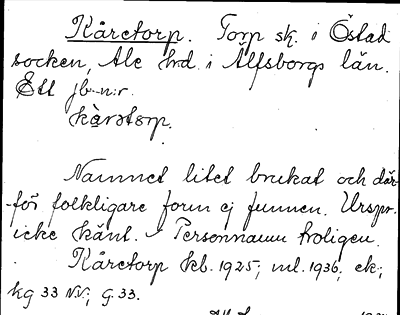 Kåretorp. Torp sk. i Östad
socken, Ale hd. i Älfsborgs län.
Ett jb-n:r.
Namnet litet brukat och där-
för folkligare form ej funnen. Urspr.
icke känt. Personnamn troligen.
Kåretorp kb. 1925; ml. 1936; ek;
kg 33 NV; G. 33.